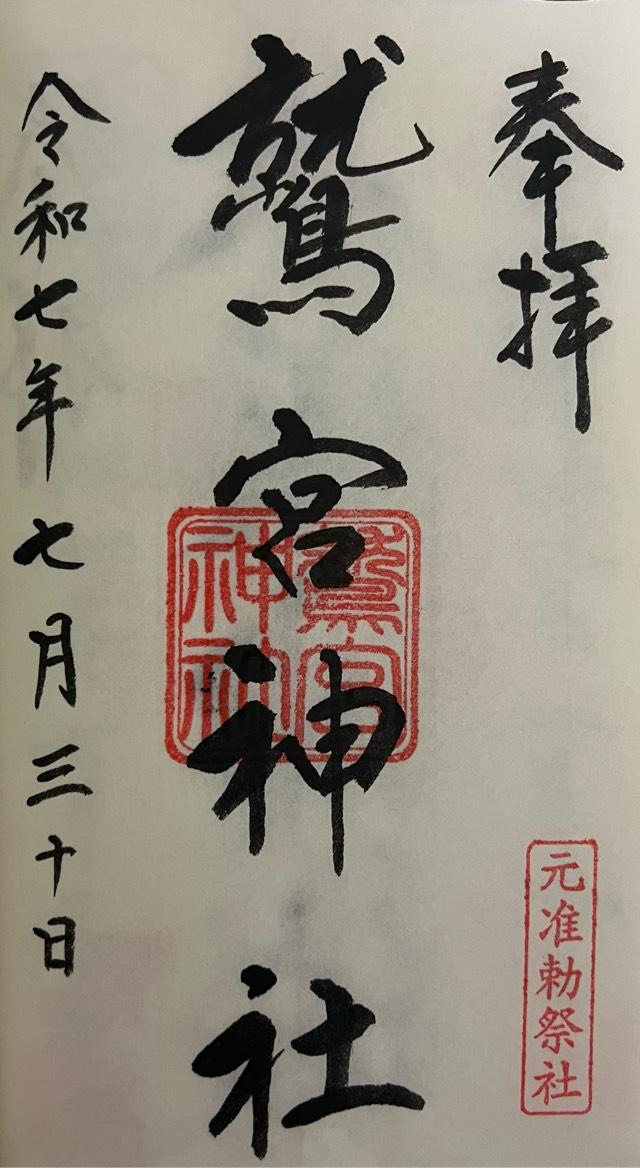 奉拝
元准勅祭社
鷲宮神社
鷲宮
神社
令和七年七月三十日